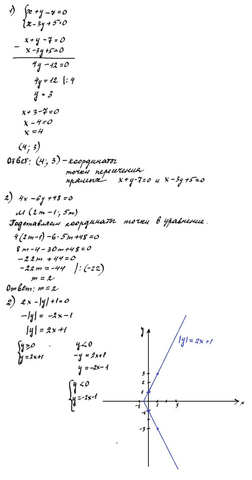 1) { x + y - 7 = 0
x - 3y + 5 = 0
- x + y - 7 = 0
x - 3y + 5 = 0
4y - 12 = 0
4y = 12 |: 4
y = 3
x + 3 - 7 = 0
x - 4 = 0
x = 4
(4; 3)
Ответ: (4; 3) - координаты
точки пересечения
прямых x + y - 7 = 0 и x - 3y + 5 = 0
2) 4x - 6y + 48 = 0
M (2m - 1; 5m)
Подставляем координаты точки в уравнение.
4(2m - 1) - 6·5m + 48 = 0
8m - 4 - 30m + 48 = 0
-22m + 44 = 0
-22m = -44 |: (-22)
m = 2
Ответ: m = 2
2) 2x - |y| + 1 = 0
-|y| = -2x - 1
|y| = 2x + 1
{ y ≥ 0
y = 2x + 1
y < 0
-y = 2x + 1
y = -2x - 1
{ y < 0
y = -2x - 1
y
|y| = 2x + 1
3
1
-1
1
3
x
-1
-3